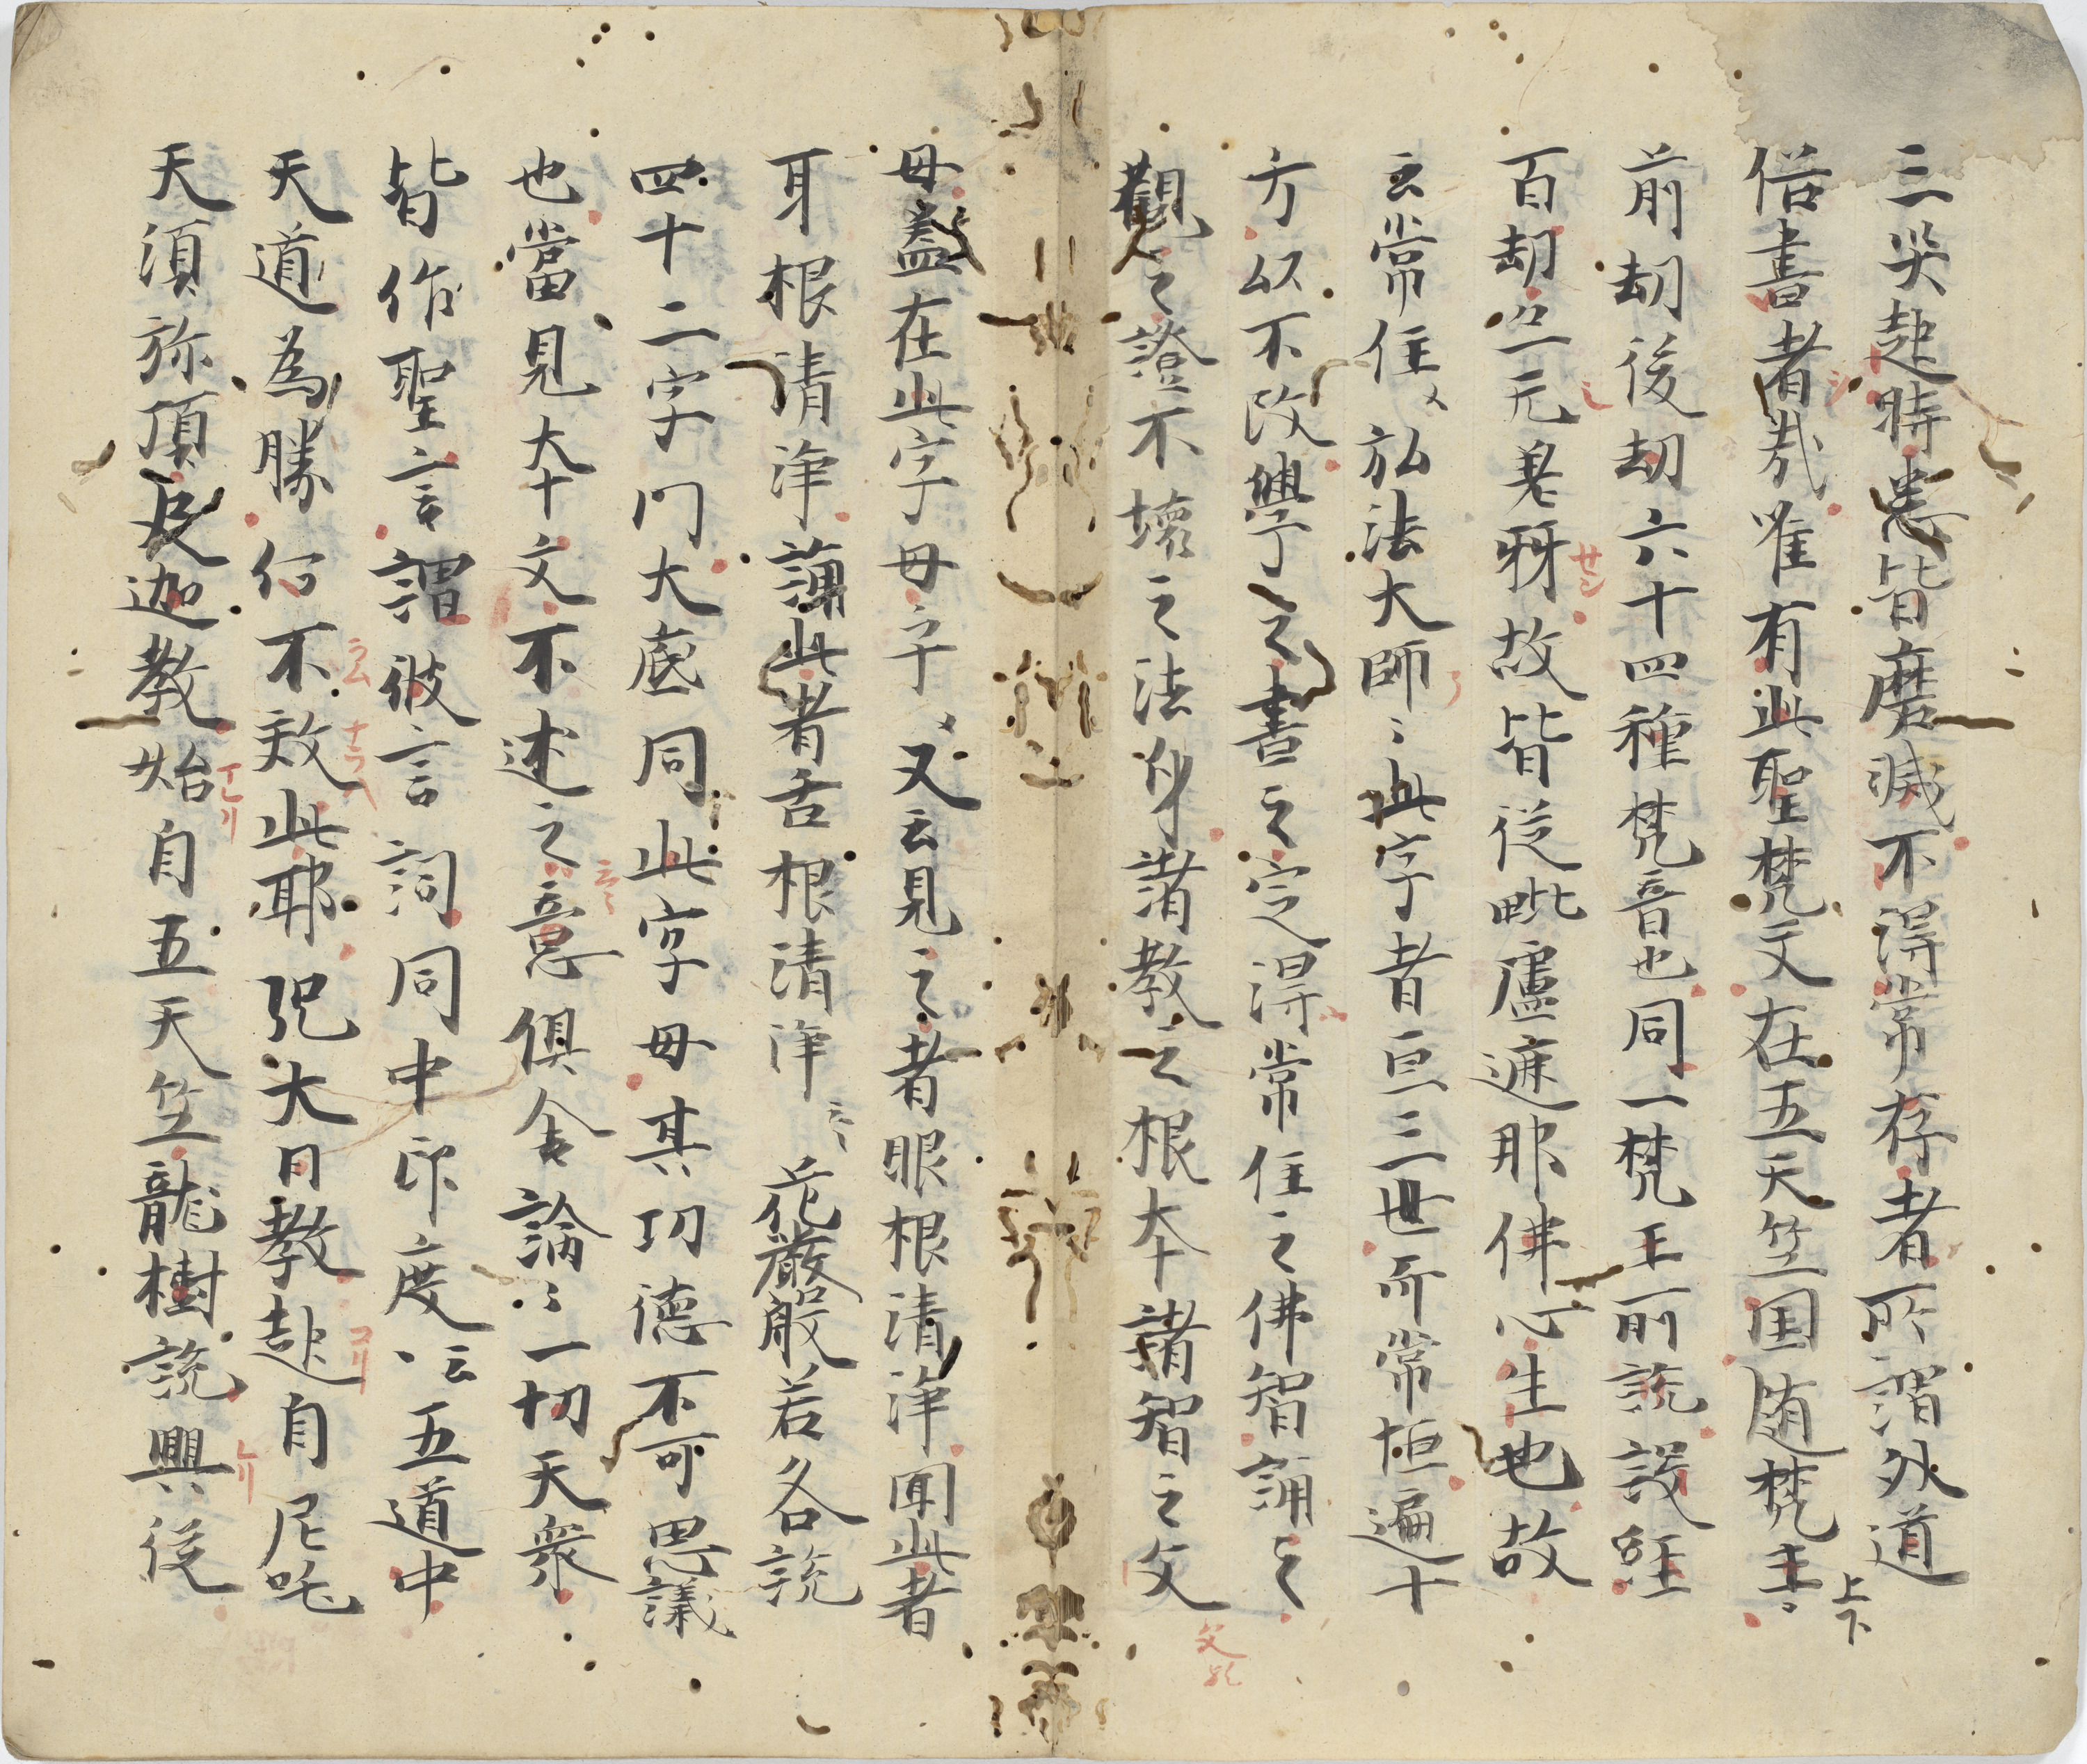 三災起時悉皆磨滅不得常存者所謂外道
俗書者哉唯有此聖梵文在五天竺国随梵王上下
前劫後劫六十四種梵音也同一梵王所説設経
百劫立元異形故皆従毗盧遮那佛心生也故
云常住〻弘法大師〻此字者亘三世而常恒遍十
方以不改學之書之定得常住之佛智誦之
觀之證不壊之法身諸教之根本諸智之父
母蓋在此字母字〻又云見之者眼根清浄聞此者
耳根清浄誦此者舌根清浄云〻花厳般若各説
四十二字門大底同此字母其功徳不可思議
也當見本文不述之意云〻倶舎論〻一切天衆
皆作聖言謂彼言詞同中印度云〻五道中
天道為勝何不效此耶況大日教起自尼吒
天須弥頂及迦教始自五天竺龍樹説興従